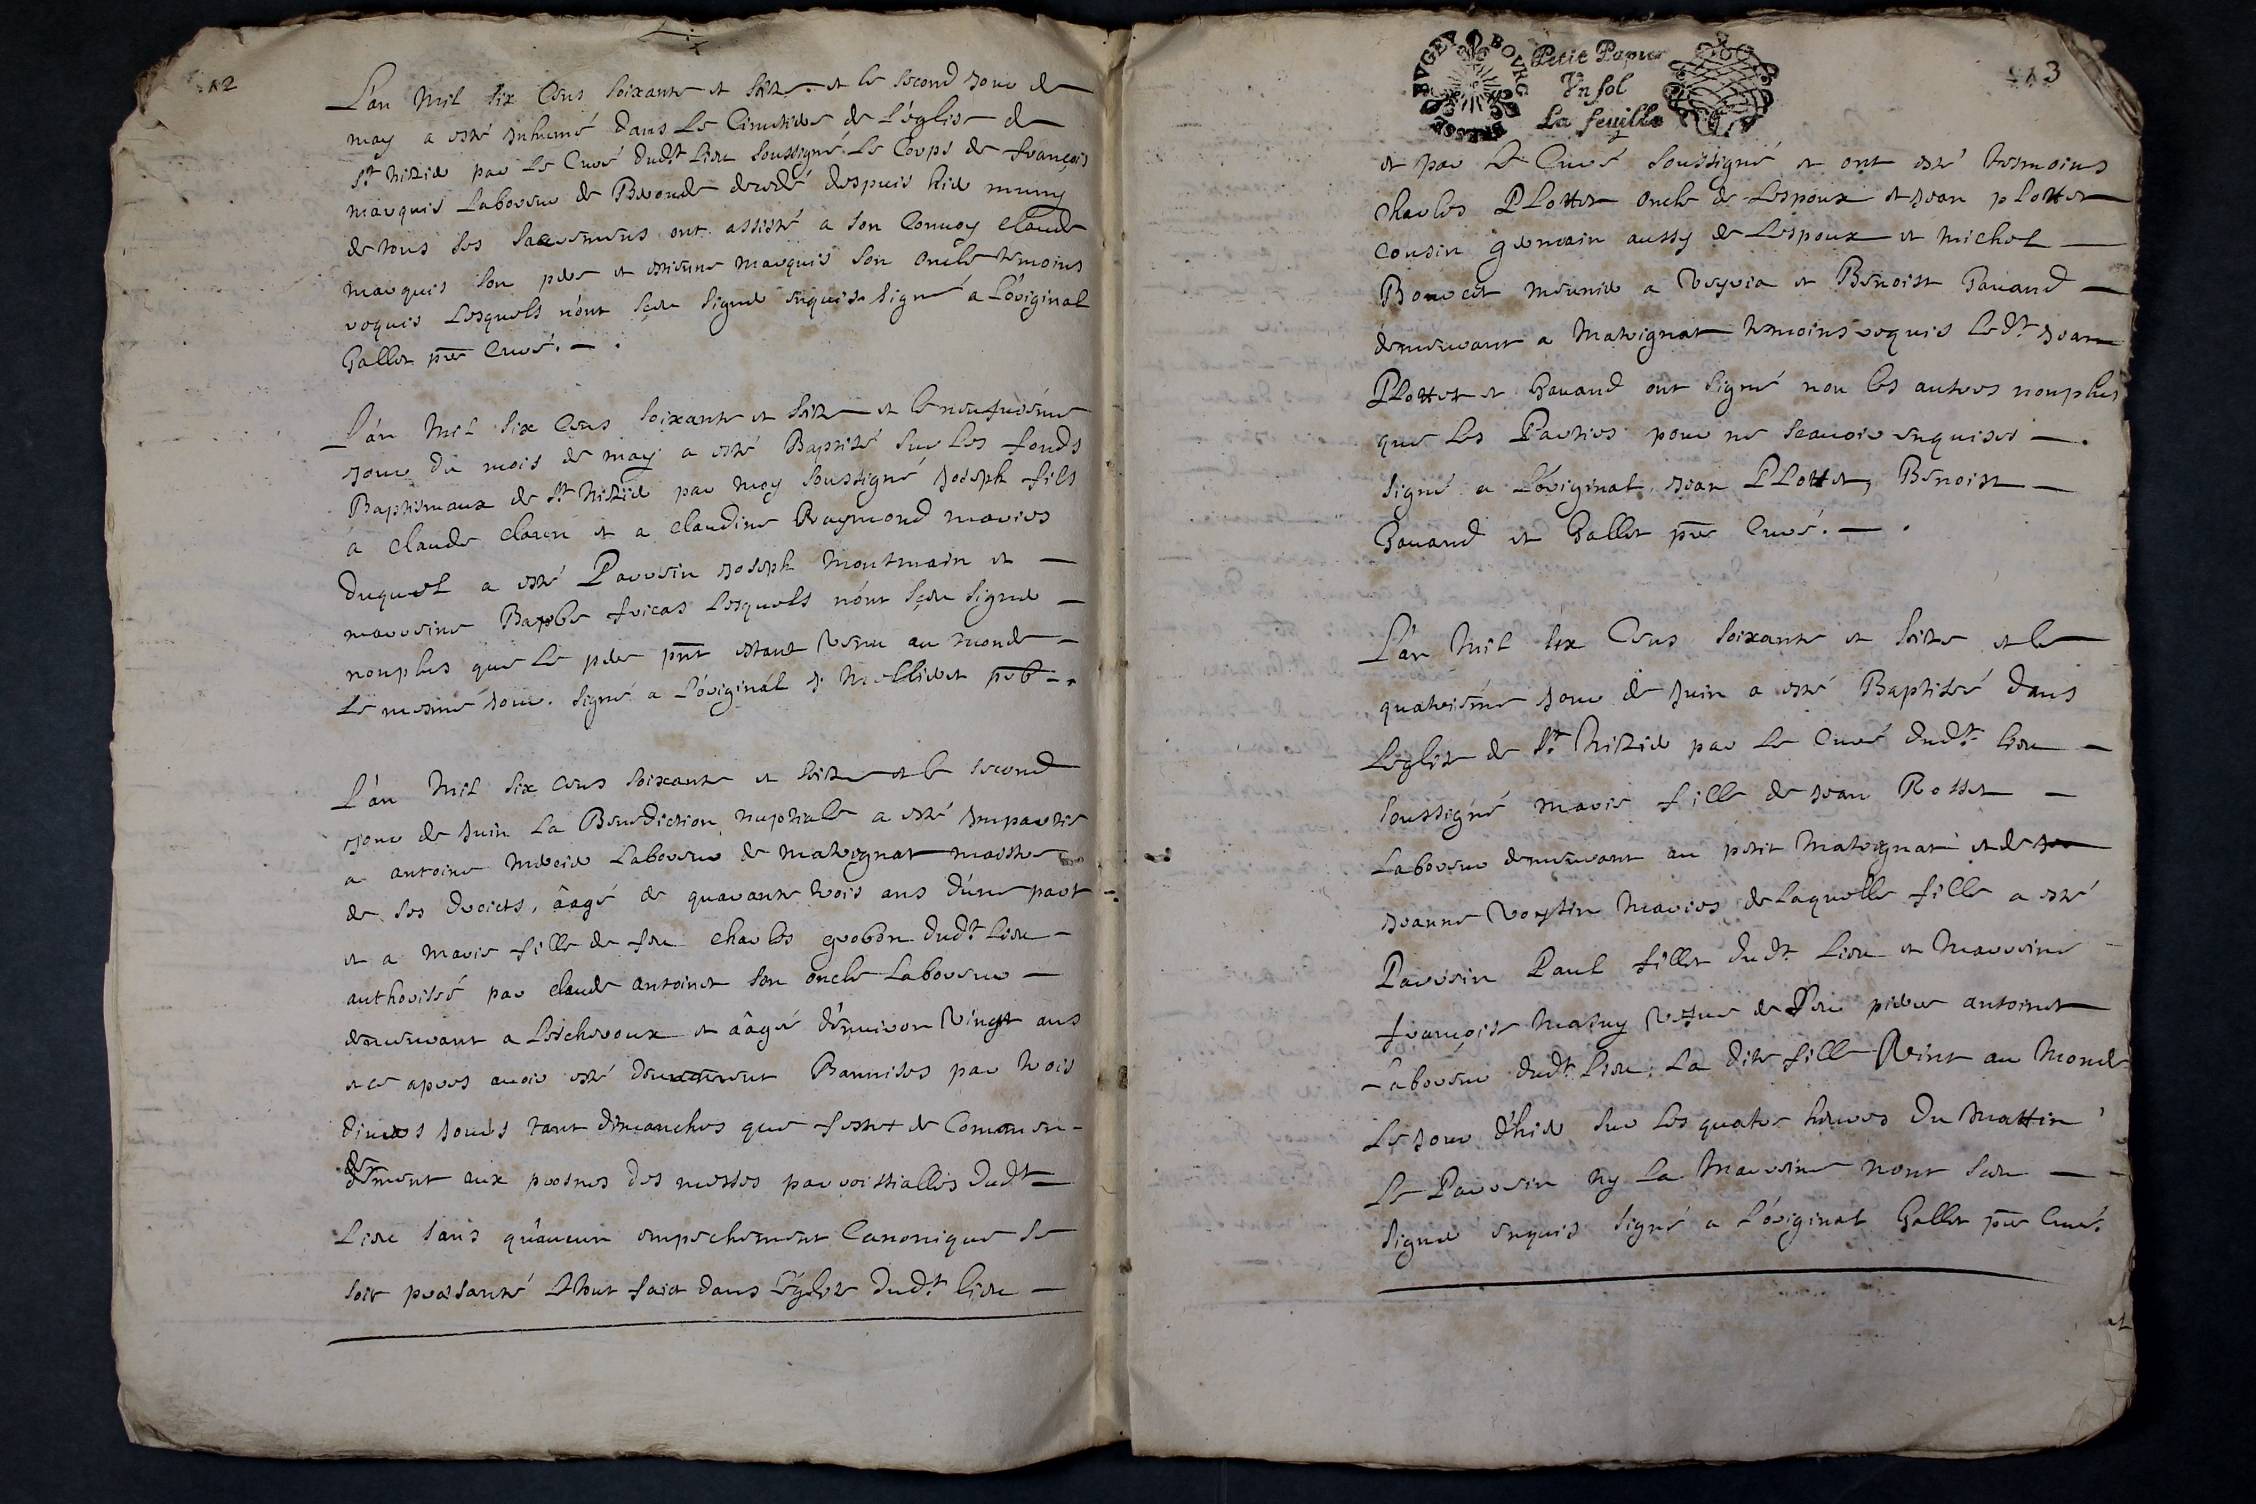 12
L'an mil six cens soixante et seize et le second jour de
may a esté inhumé dans le Cimetiere de l'église de
St Nizier par le Curé dudt lieu soussigné le Corps de françois
marquis laboreur de decedé despuis hier muny
de tous ses sacremens ont assisté a son Convoy claude
marquis son pere et estienne marquis son oncle temoins
requis lesquels n'ont sceu signer enquis signé a l'original
Gallet pre Curé.
L'an mil six cens soixante et seize et le neufviéme
jour du mois de may a esté Baptisé sur les fonds
Baptismaux de St Nizier par moy soussigné joseph fils
a claude et a claudine Raymond maries
duquel a esté Parrein joseph Montmain et
marreine lesquels n'ont sceu signer
nonplus que le pere pnt estant venu au monde
le mesme jour. signé a l'original
L'an mil six cens soixante et seize et le second
jour de juin la Benediction nuptiale a esté impartie
a antoine Mercier laboreur de Matrignat maistre
de ses droicts, âagé de quarante trois ans d'une part
et a marie fille de feu charles dudt lieu
authorisée par claude antoinet son oncle laboreur
demeurant a Lescheroux et âagée d'environ vingt ans
et ce apres avoir esté deuement Bannises par trois
divers jours tant dimanches que festes de Comman-
dement aux prosnes des messes parroissialles dudt
lieu sans qu'aucun empechement Canonique se
soit presanté letout faict dans l'église dudt lieu
BVGEY BOVRG BRESSE
Petit Papier
Vn sol
La feuille
13
et par le Curé soussigné et ont esté tesmoins
charles PLottet oncle de lespoux et jean pLottet
cousin germain aussy de lespoux et michel
Bouvet meunier a et Benoist Gavand
demeurant a Matrignat temoins requis ledt jean
PLottet et Gavand ont signé non les autres nonplus
que les Parties pour ne scavoir enquises
signé a l'original jean PLottet, Benoist
Gavand et Gallet pre Curé.
L'an mil six Cens soixante et seize et le
quatriéme jour de juin a esté Baptisée dans
l'église de St Nizier par le Curé dudt lieu
soussigné marie fille de jean Rosset
laboreur demeurant au petit Matrignat et de
jeanne maries delaquelle fille a esté
Parrein Paul fillet dudt lieu et Marreine
françoise vefve de feu pierre antoinet
laboreur dudt lieu, La dite fille Vint au Monde
Le jour d'hier sur les quatre heures du Mattin
Le Parrein ny la Marreine nont sceu
signer enquis signé a l'original Gallet pre Curé.